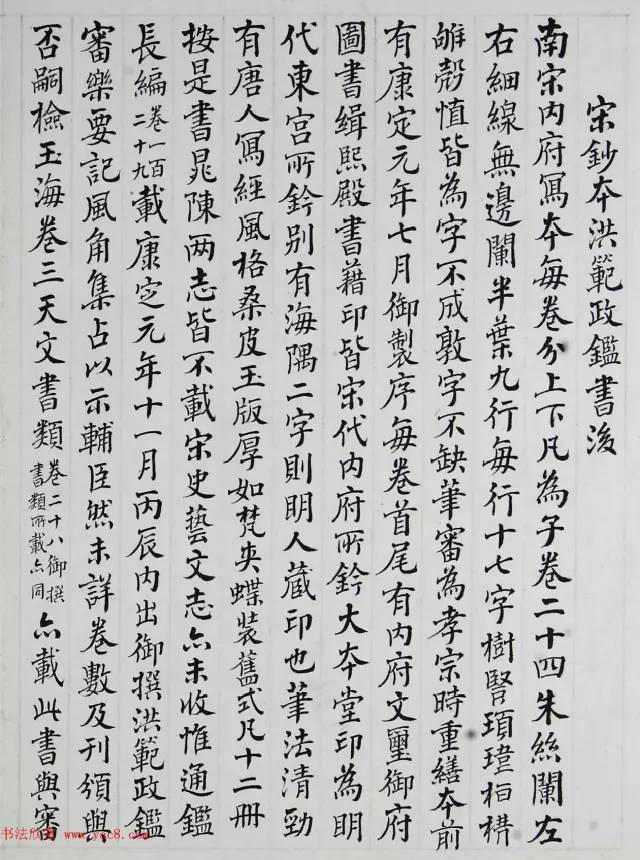 宋鈔本洪範政鑑書後
南宋内府寫本每卷分上下凡為子卷二十四朱絲闌左
右細線無邊闌半葉九行每行十七字樹豎頊瑋桓構
雊慤慎皆為字不成敦字不缺筆審為孝宗時重繕本前
有康定元年七月御製序每卷首尾有内府文璽御府
圖書緝熙殿書籍印皆宋代内府所鈐大本堂印為明
代東宮所鈐别有海隅二字則明人藏印也筆法清勁
有唐人寫經風格桑皮玉版厚如梵夾蝶裝舊式凡十二冊
按是書晁陳两志皆不載宋史藝文志亦未收惟通鑑
長編卷一百二十九載康定元年十一月丙辰内出御撰洪範政鑑
審樂要記風角集占以示輔臣然未詳卷數及刊頒與
否嗣檢玉海卷三天文書類卷二十八御撰書類所載亦同亦載此書與審
书法欣赏 www.yac8.com